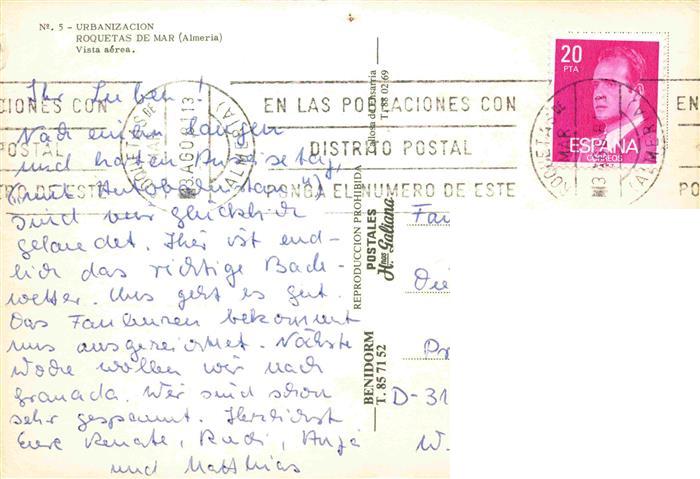 Nº. 5 - URBANIZACION
ROQUETAS DE MAR (Almería)
Vista aérea.
Ihr Lieben!
Nach einem langen
und harten Anreisetag,
(mit Autobahnstau!)
sind wir glücklich
gelandet. Hier ist end-
lich das richtige Bade-
wetter. Uns geht es gut.
Das Faulenzen bekommt
uns ausgezeichnet. Nächste
Woche wollen wir nach
Granada. Wir sind schon
sehr gespannt. Herzlichst
Eure Renate, Rudi, Anja
und Matthias
REPRODUCCION PROHIBIDA
T. 88 02 69
POSTALES
Hnos Galiana
BENIDORM
T. 85 71 52
20
PTA
ESPAÑA
CORREOS
CIONES CON
POSTAL
RO DE ESTE
ROQUETAS DE MAR
13 AGO
(ALMERIA)
EN LAS POBLACIONES CON
DISTRITO POSTAL
PONGA EL NUMERO DE ESTE
ROQUETAS DE MAR
(ALMERIA)
EN
PO
Fam
Die
D-31
W.